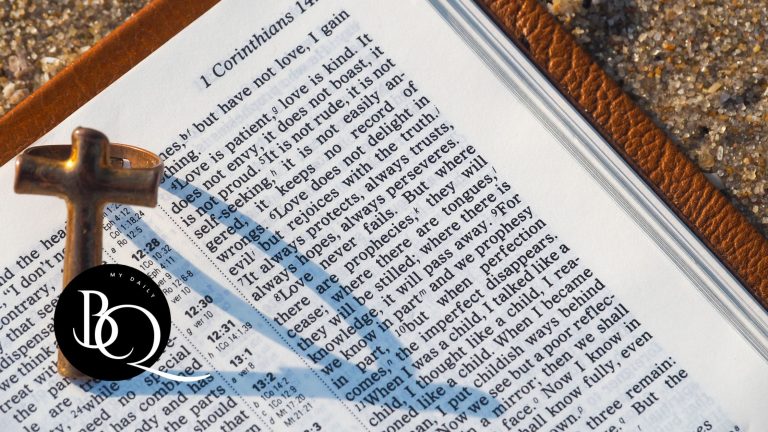 1 Corinthians 14
but have not love, I gain
thing.
4Love is patient,g love is kind. It
does not envy, it does not boast, it
is not proud. 5It is not rude, it is not
self-seeking, it is not easily an-
gered, it keeps no record of
wrongs. 6Love does not delight in
evil but rejoices with the truth.
7It always protects, always trusts,
always hopes, always perseveres.
8Love never fails. But where
there are prophecies, they will
cease; where there are tongues,
they will be stilled; where there is
knowledge, it will pass away. 9For
we know in part and we prophesy
in part, 10but when perfection
comes, the imperfect disappears.
11When I was a child, I talked like a
child, I thought like a child, I rea-
soned like a child. When I became
man, I put childish ways behind
Now we see but a poor reflec-
a mirror; then we shall
face. Now I know in
shall know fully, even
three remain:
But the
12:28
12:30
12:31
13:1
13:2
and the hea
"I don't
contrary,
we think
treat with
MY DAILY
BQ